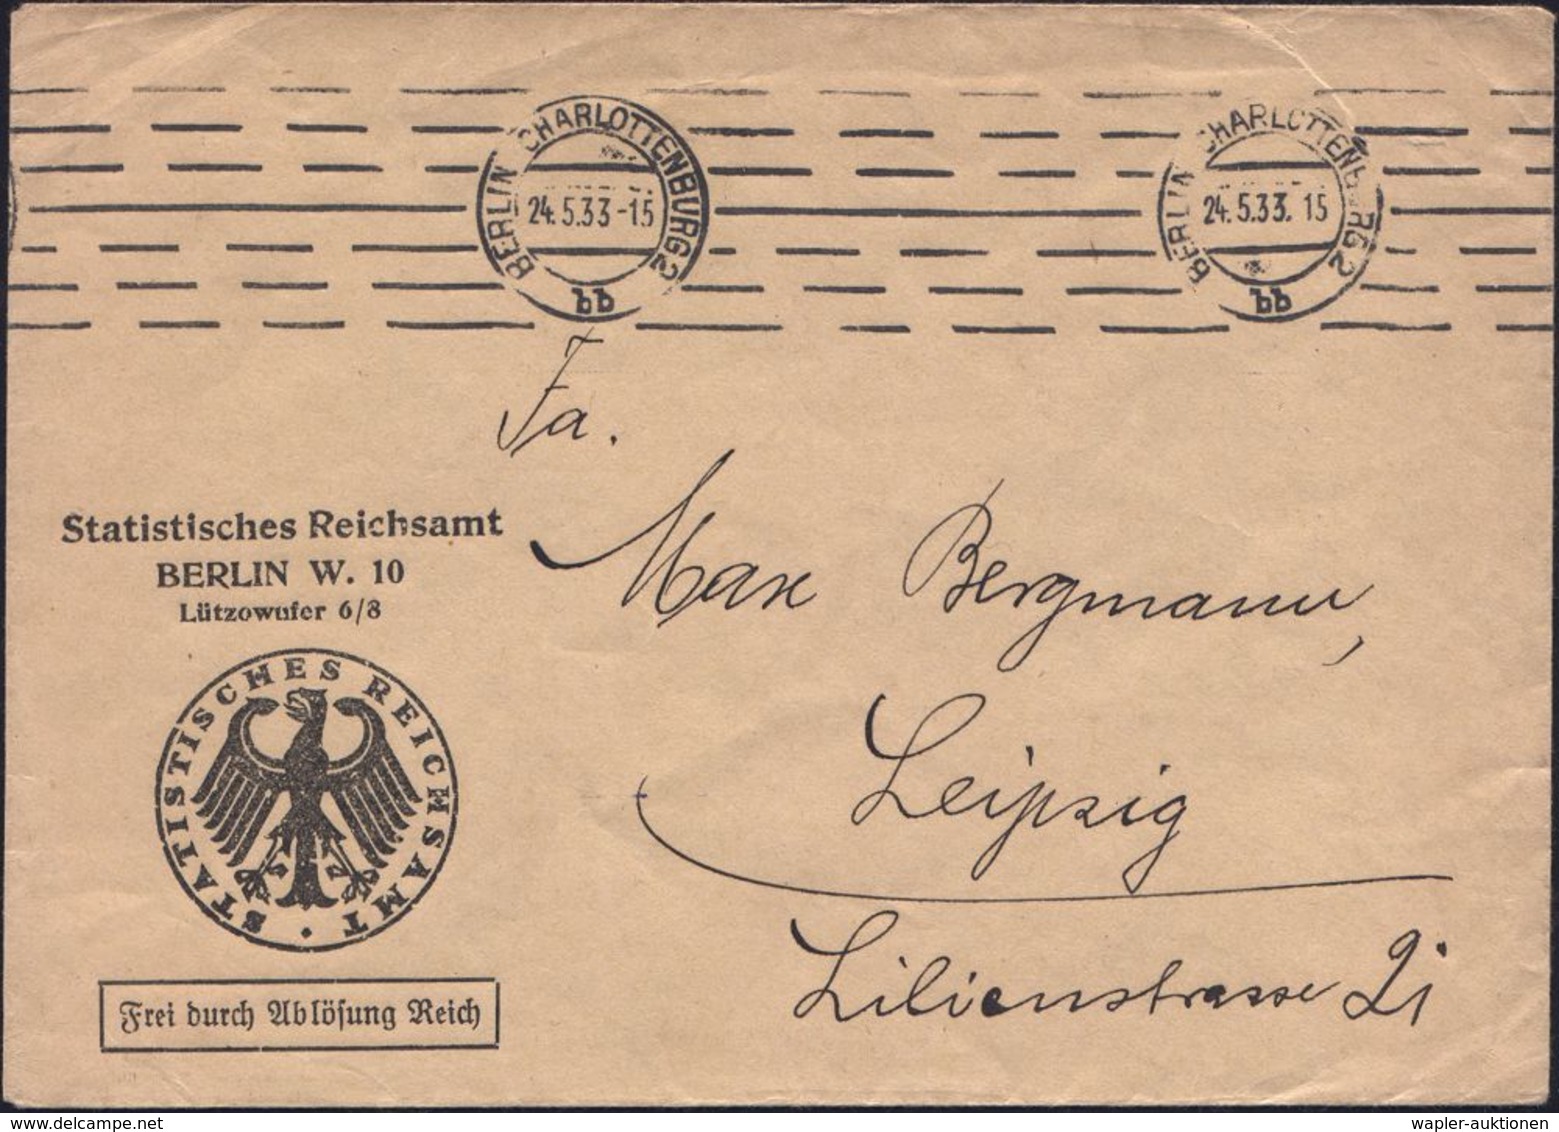 BERLIN-CHARLOTTENBURG 2
24.5.33-15
bb
BERLIN-CHARLOTTENBURG 2
24.5.33. 15
bb
Fa.
Max Bergmann,
Leipzig
Lilienstrasse
Statistisches Reichsamt
BERLIN W. 10
Lützowufer 6/8
STATISTISCHES REICHSAMT
Frei durch Ablösung Reich
wapler-auktionen